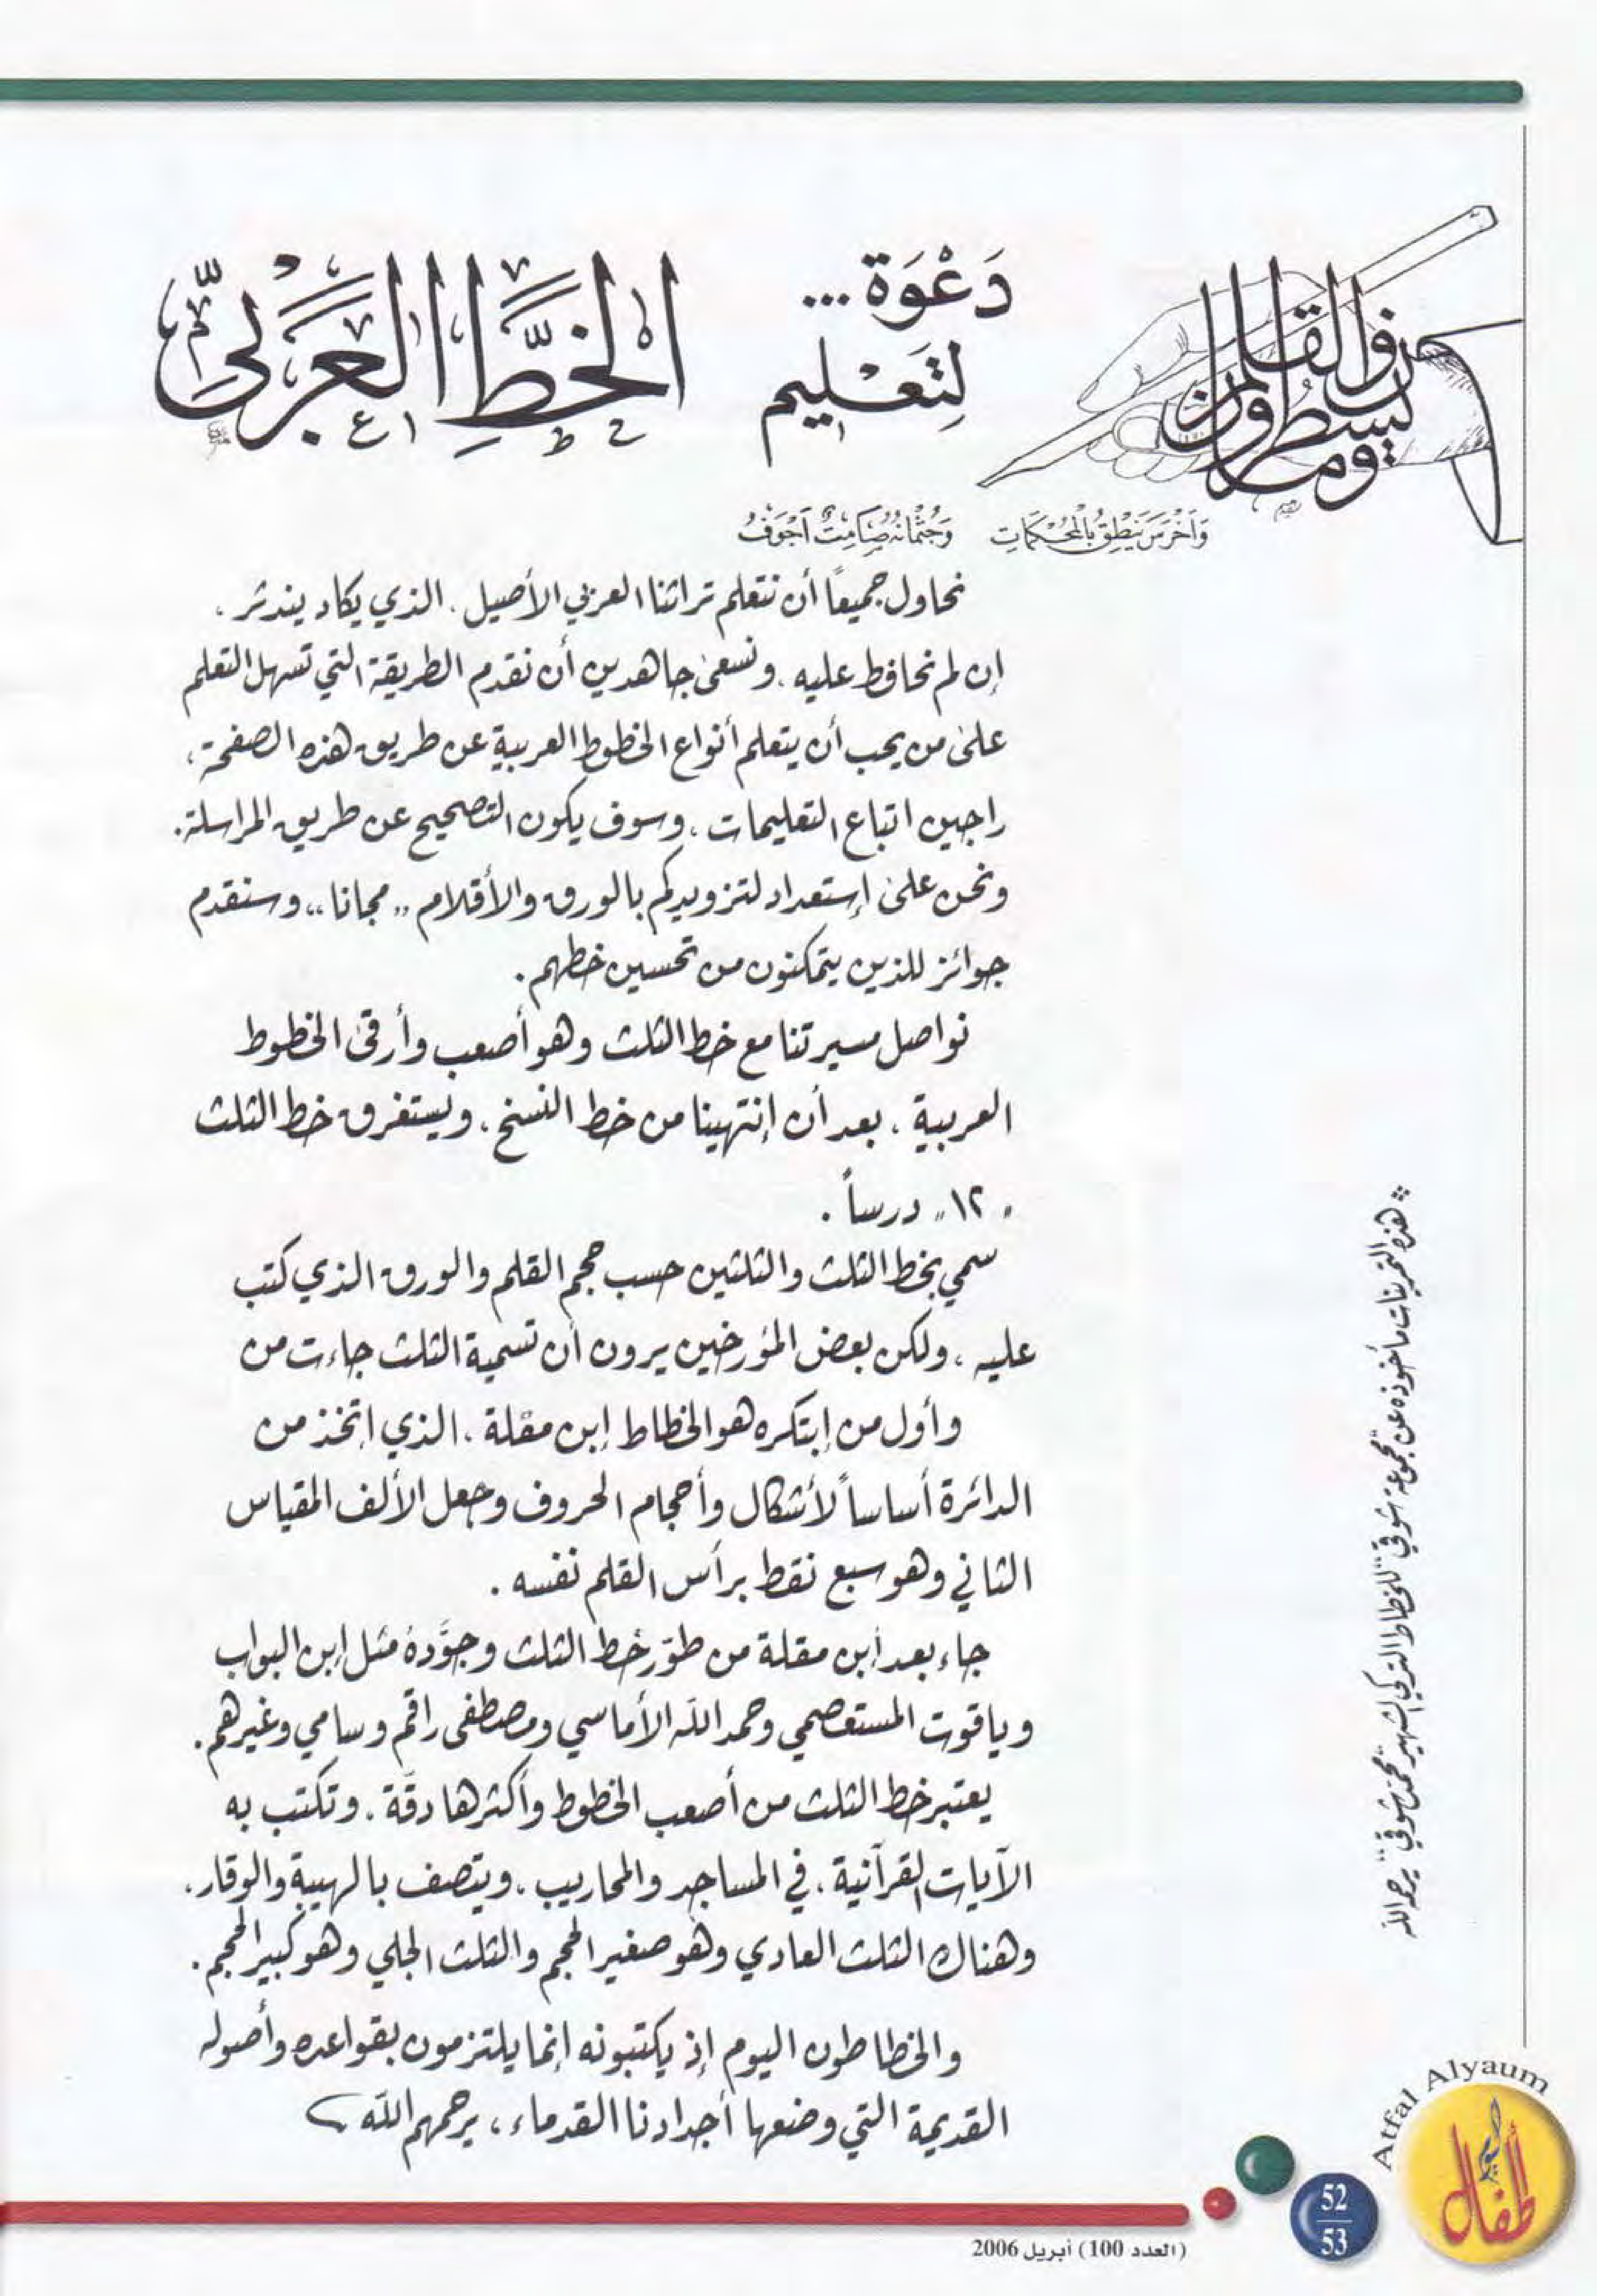 دَعْوَة ...
لِتَعْليم
الخَطِّ العَرَبيِّ
ن والقلم وما يسطرون
وَأَخْرَسَ يَنْطِقُ بِالْمُحْكَمَاتِ وَجُثْمَانُهُ صَامِتٌ أَجْوَفُ
نحاول جميعاً أن نتعلم تراثنا العربي الأصيل . الذي يكاد يندثر ،
إن لم نحافظ عليه . ونسعى جاهدين أن نقدم الطريقة التي تسهل التعلم
على من يحب أن يتعلم أنواع الخطوط العربية عن طريق هذه الصفحة ،
راجين اتباع التعليمات ، وسوف يكون التصحيح عن طريق المراسلة .
ونحن على إستعداد لتزويدكم بالورق والأقلام ,, مجانا ,, وسنقدم
جوائز للذين يتمكنون من تحسين خطهم .
نواصل مسيرتنا مع خط الثلث وهو أصعب وأرقى الخطوط
العربية . بعد أن إنتهينا من خط النسخ ، ويستغرق خط الثلث
,, ١٢ ,, درساً .
سمي بخط الثلث والثلثين حسب حجم القلم والورق الذي كتب
عليه ، ولكن بعض المؤرخين يرون أن تسمية الثلث جاءت من
وأول من إبتكره هو الخطاط إبن مقلة . الذي إتخذ من
الدائرة أساساً لأشكال وأحجام الحروف وجعل الألف المقياس
الثاني وهو سبع نقط برأس القلم نفسه .
جاء بعد أبن مقلة من طوّر خط الثلث وجوَّده مثل إبن البواب
وياقوت المستعصمي وحمد الله الأماسي ومصطفى راقم وسامي وغيرهم .
يعتبر خط الثلث من أصعب الخطوط وأكثرها دقّة . وتكتب به
الآيات القرآنية . في المساجد والمحاريب . ويتصف بالهيبة والوقار .
وهناك الثلث العادي وهو صغير الحجم والثلث الجلي وهو كبير الحجم .
والخطاطون اليوم إذ يكتبونه إنما يلتزمون بقواعده وأصوله
القديمة التي وضعها أجدادنا القدماء ، يرحمهم الله
❖ هذه التمرينات مأخوذة عن ,, مجموعة شوقي ,, للخطاط التركي الشهير ,, محمد شوقي ,, يرحمه الله
Atfal Alyaum
أطفال اليوم
52
53
(العدد 100) أبريل 2006